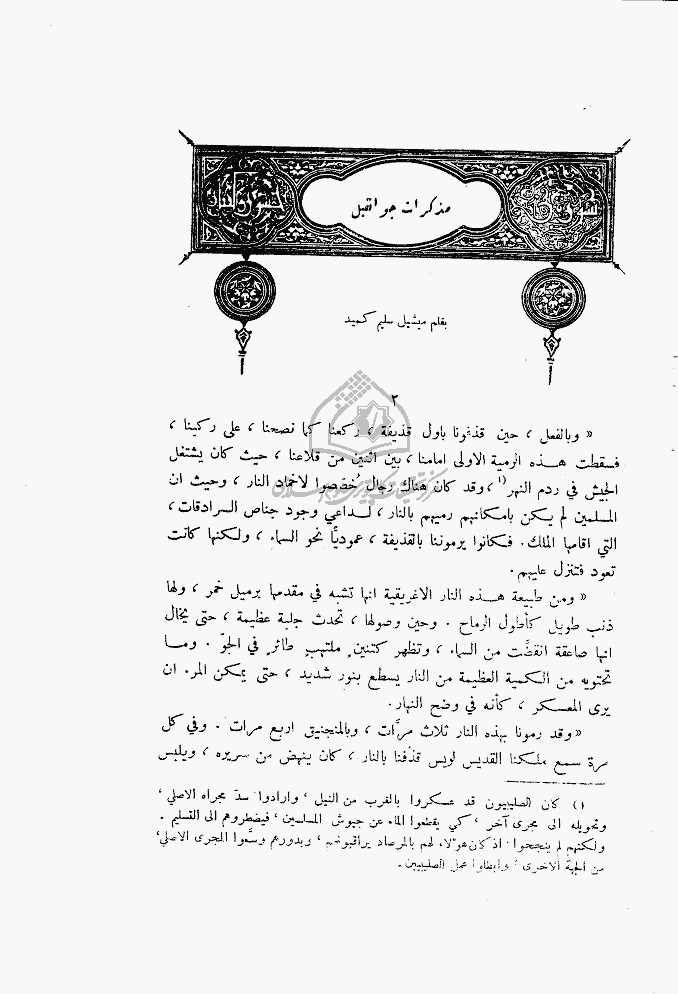 مذكرات جوانقبل
بقلم ميشيل سليم كميد
٢
« وبالفعل ، حين قذفونا باول قذيفة ، ركعنا كما نصحنا ، على ركبنا ،
فسقطت هـذه الرمية الاولى امامنا ، بين اثنين من قلاعنا ، حيث كان يشتغل
الجيش في ردم النهر ١) ، وقد كان هناك رجال خُصّصوا لاخماد النار ، وحيث ان
المسلمين لم يكن بامكانهم رميهم بالنار ، لـداعي وجود جناص السرادقات ،
التي اقامها الملك. فكانوا يرموننا بالقذيفة ، عموديًّا نحو السماء ، ولكنها كانت
تعود فتنزل عليهم.
« ومن طبيعة هـذه النار الاغريقية انها تشبه في مقدمها برميل خمر ، ولها
ذنب طويل كأطول الرماح . وحين وصولها ، تحدث جلبة عظيمة ، حتى يخال
انها صاعقة انقضّت من السماء ، وتظهر كتنينٍ ملتهبٍ طائرٍ في الجوّ . ومـا
تحتويه من الكمية العظيمة من النار يسطع بنور شديد ، حتى يمكن المرء ان
يرى المعسكر ، كأنه في وضح النهار.
« وقد رمونا بهذه النار ثلاث مرَّات ، وبالمنجنيق اربع مرات . وفي كل
مرة سمع ملكنا القديس لويس قذفنا بالنار ، كان ينهض من سريره ، ويلبس
١) كان الصليبيون قد عسكروا بالقرب من النيل ، وارادوا سدّ مجراه الاصلي ،
وتحويله الى مجرى آخر ، كي يقطعوا الماء عن جيوش المسلمين ، فيضطروهم الى التسليم .
ولكنهم لم ينجحوا . اذ كان هؤلاء لهم بالمرصاد يراقبونهم ، وبدورهم وسَّعوا المجرى الاصلي ،
من الجهة الاخرى ، وابطلوا عمل الصليبيين .